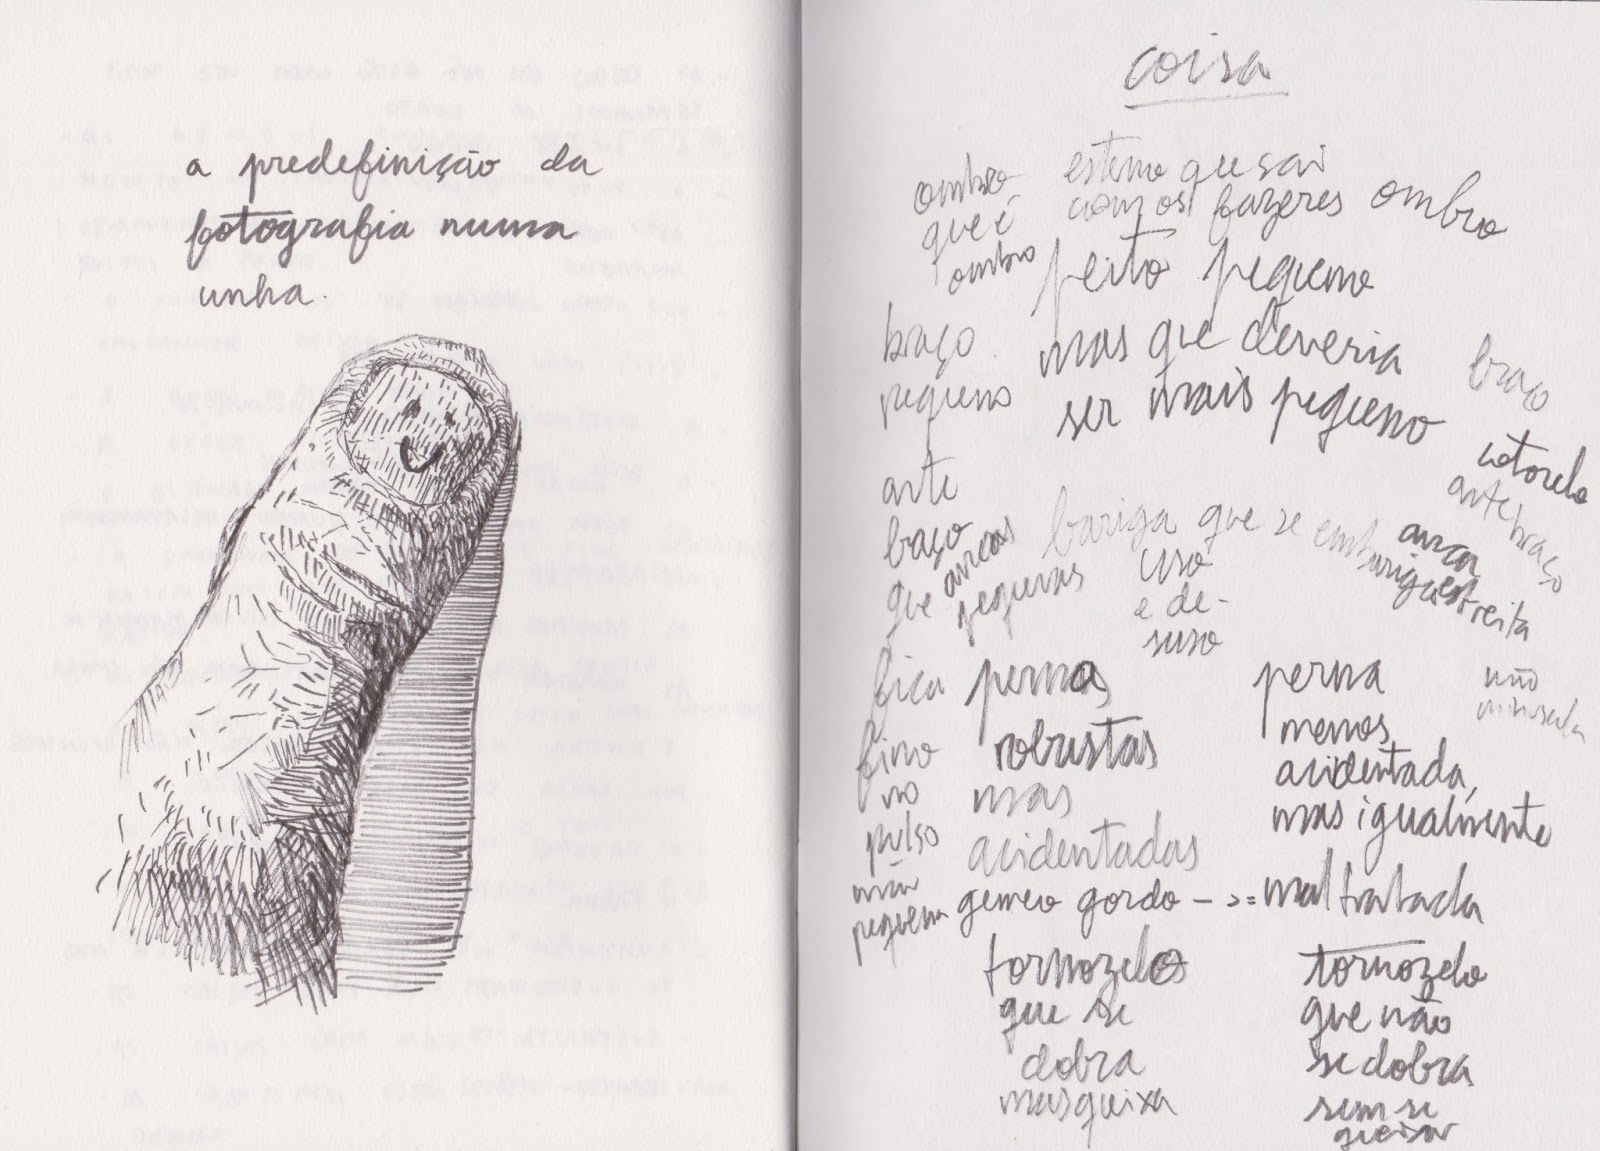 a predefinição da
fotografia numa
unha.
coisa
ombro
que é
ombro
esterno que sai
com os fazeres
ombro
peito pequeno
mas que deveria
ser mais pequeno
braço
pequeno
braço
cotovelo
ante braço
ante
braço
que
fica
fino
no
pulso
mão
pequena
ancas
pequenas
bariga que se embariga
uso
e de-
suso
anca
estreita
mão
minuscula
pernas
robustas
mas
acidentadas
gemeo gordo - >=
perna
menos
acidentada,
mas igualmente
maltratada
tornozelos
que se
dobra
mas queixa
tornozelo
que não
se dobra
sem se
queixar